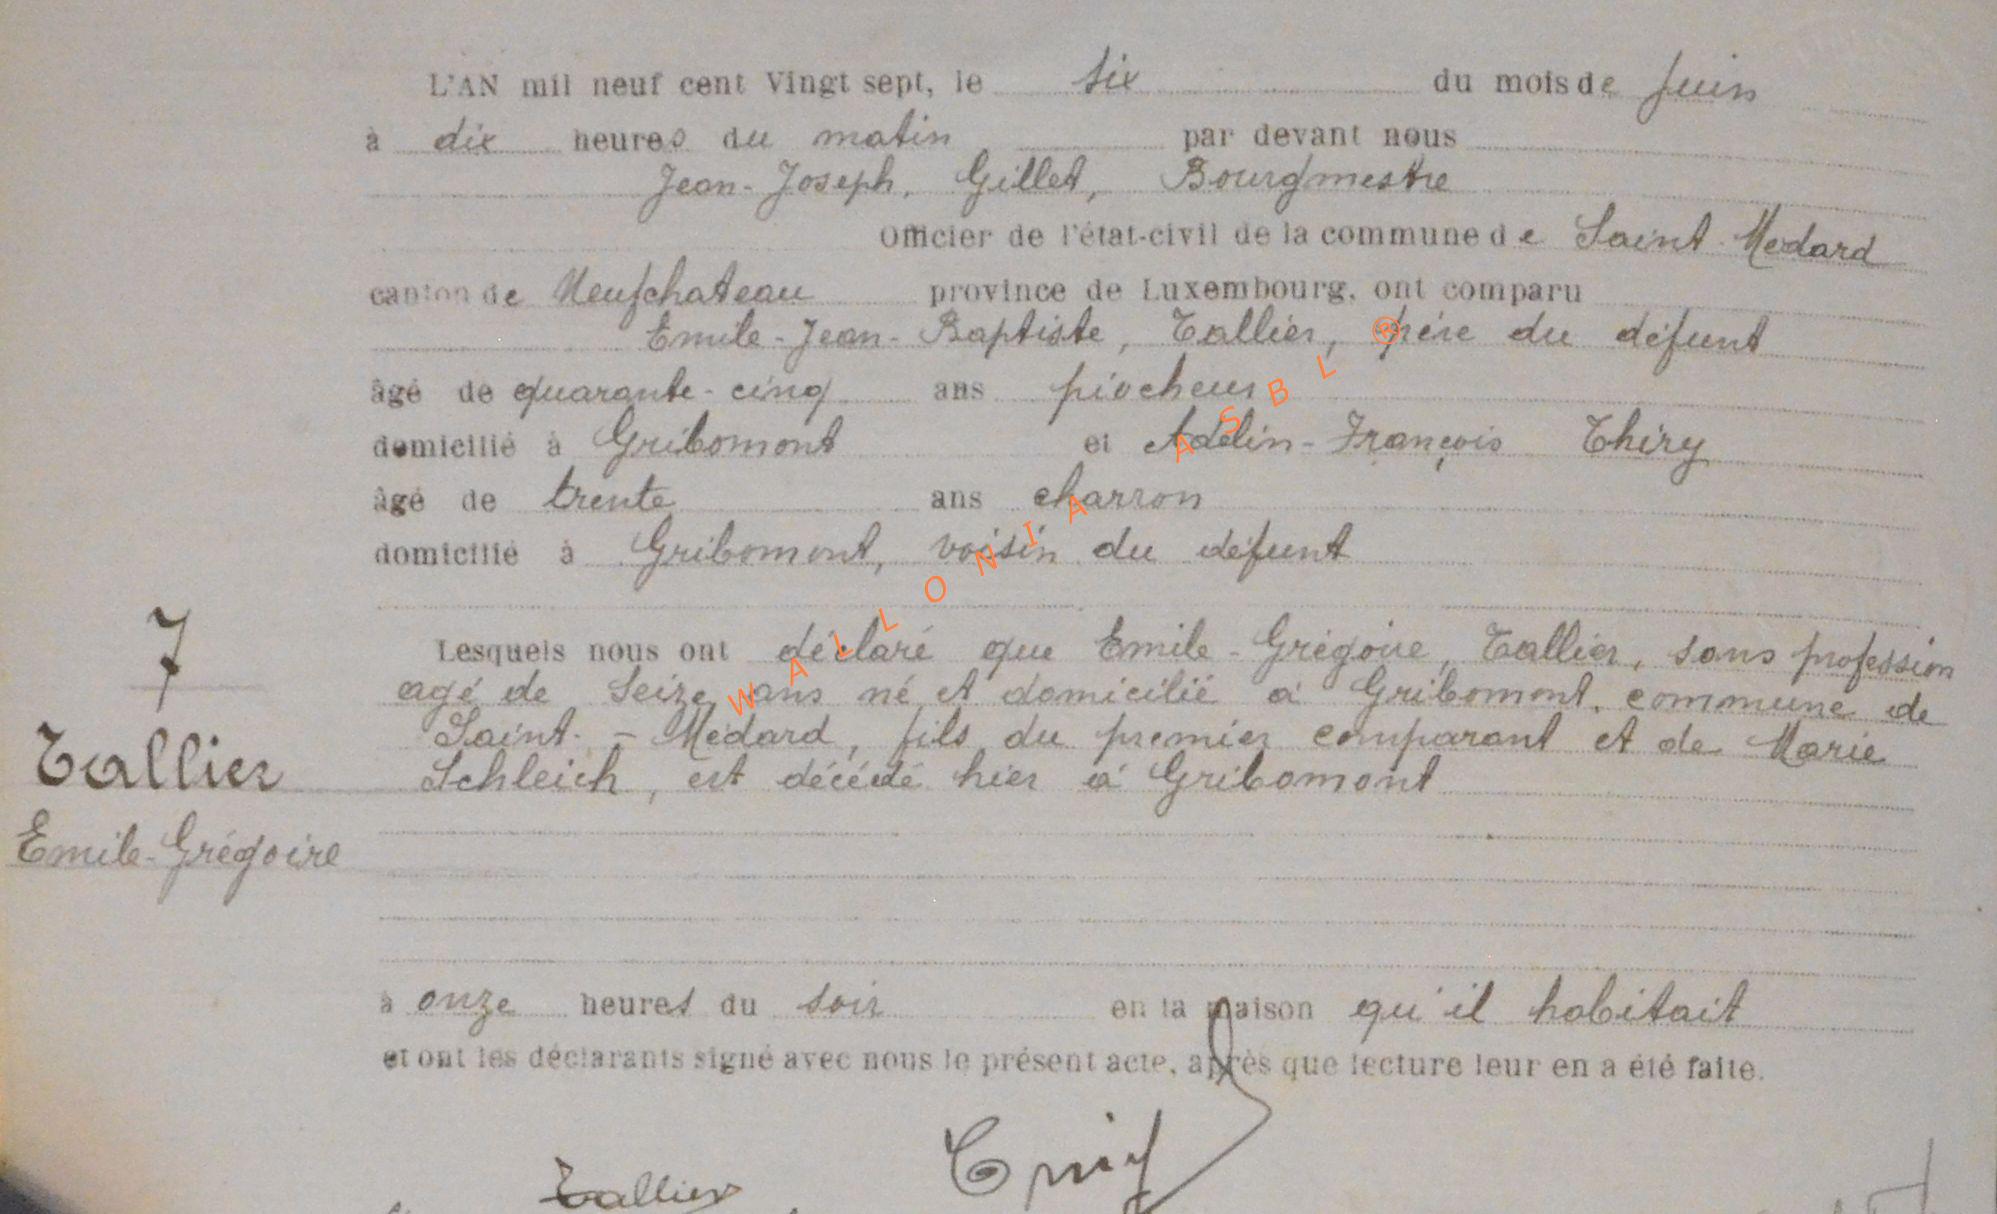 L'AN mil neuf cent Vingt sept, le six du mois de Juin
à dix heures du matin par devant nous
Jean-Joseph, Gillet, Bourgmestre
Officier de l'état-civil de la commune de Saint-Médard
canton de Neufchateau province de Luxembourg, ont comparu
Emile-Jean-Baptiste, Tallier, père du défunt
âgé de quarante-cinq ans piocheur
domicilié à Gribomont et Adelin-François Thiry
âgé de trente ans charron
domicilié à Gribomont, voisin du défunt
7
Lesquels nous ont déclaré que Emile-Grégoire, Tallier, sans profession
agé de Seize ans né et domicilié à Gribomont, commune de
Saint-Médard, fils du premier comparant et de Marie
Tallier
Schleich, est décédé hier à Gribomont
Emile-Grégoire
à onze heures du soir en la maison qu'il habitait
et ont les déclarants signé avec nous le présent acte, après que lecture leur en a été faite.
Tallier
WALLONIA ASBL ®